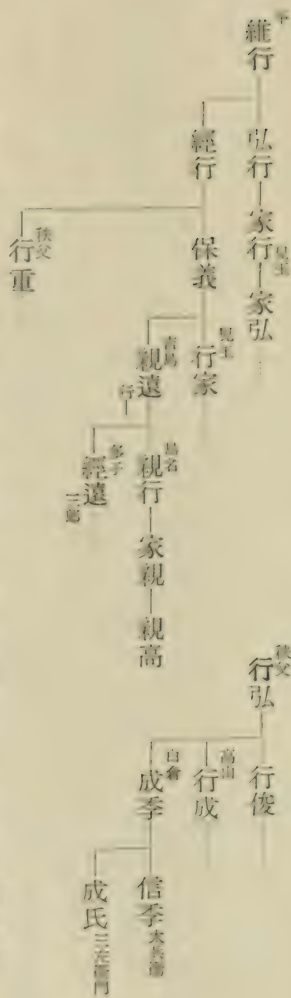 維行
弘行―家行―家弘……
兒玉
經行
保義
秩父
行重
兒玉
行家
親遠
行
島名
親行―家親―親高
多子
經遠 三郎
秩父
行弘
行俊
高山
行成
白倉
成季
信季 太兵衛
成氏 三左衞門